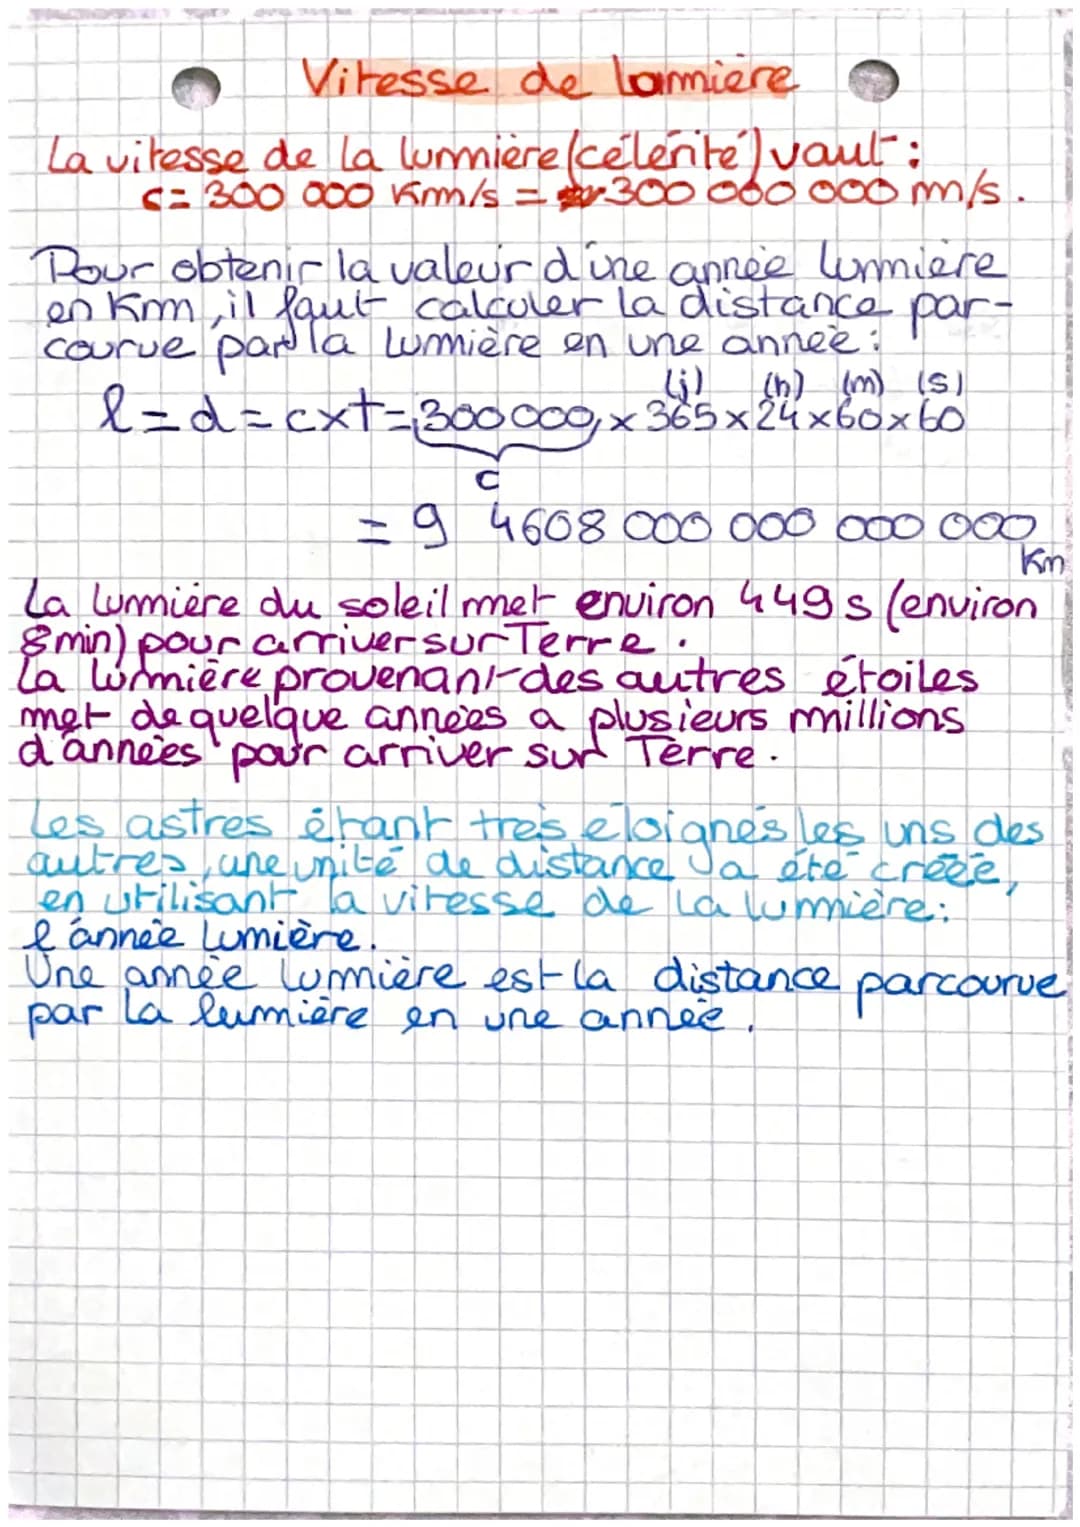 Vitesse de lumière
La vitesse de la lumière (célérité) vaut :
c = 300 000 Km/s = 300 000 000 m/s.
Pour obtenir la valeur d'une année lumière
en Km, il faut calculer la distance par-
courue par la lumière en une année :
(j) (h) (m) (s)
l = d = c x t = 300 000 x 365 x 24 x 60 x 60
c
= 9 4608 000 000 000 000
Km
La lumière du soleil met environ 449 s (environ
8 min) pour arriver sur Terre.
La lumière provenant des autres étoiles
met de quelque années a plusieurs millions
d'années pour arriver sur Terre.
Les astres étant très éloignés les uns des
autres, une unité de distance a été créée,
en utilisant la vitesse de la lumière :
l'année lumière.
Une année lumière est la distance parcourue
par la lumière en une année.